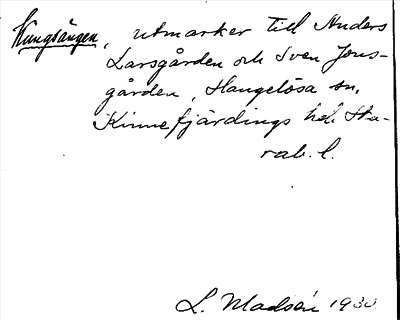 Kungsängen, utmarker till Anders
Larsgården och Sven Jons-
gården, Hangelösa sn,
Kinnefjärdings hd. Ska-
rab. l.
L. Madsén 1930